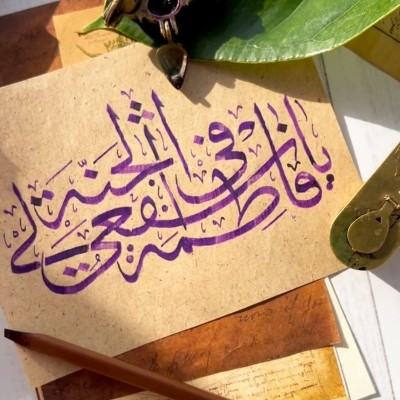 يا فاطمة اشفعي لي في الجنة